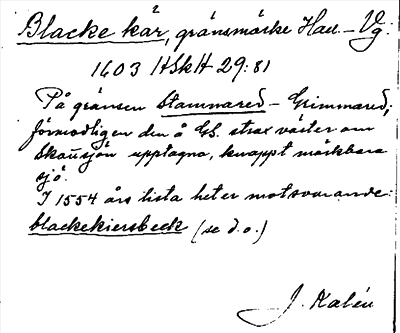 Blacke kär, gränsmärke Hall – Vg:
1603 HSkH 29:81
På gränsen Stammared – Grimmared;
förmodligen den å GS. strax väster om
Skäusjön upptagna, knappt märkbara
sjö.
I 1554 års lista heter motsvarande:
blackekiersbeck (se d.o.)
J. Kalén